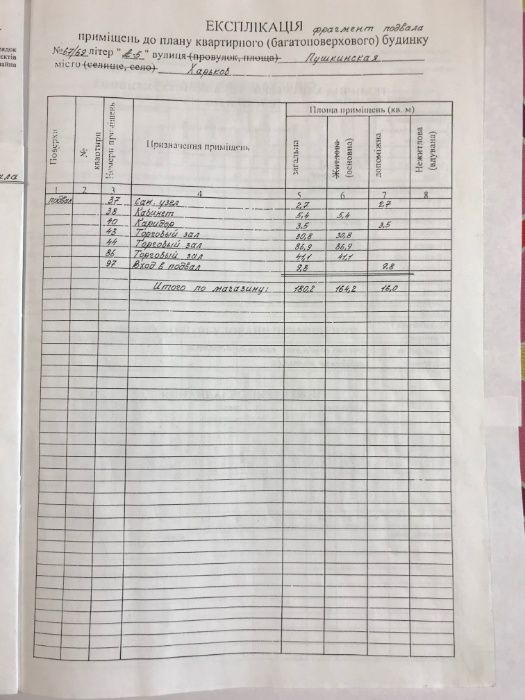 ЕКСПЛІКАЦІЯ фрагмент подвала
приміщень до плану квартирного (багатоповерхового) будинку
№67/69 літер " " вулиця (провулок, площа) Пушкинская
місто (селище, село) Харьков
Поверхи № квартири Номери приміщень Призначення приміщень Площа приміщень (кв. м)
загальна Житлова (основна) допоміжна Нежитлова (вбудова)
1 2 3 4 5 6 7 8
подвал 37 Сан. узел 2,7 2,7
38 Кабинет 5,4 5,4
40 Каридор 3,5 3,5
43 Торговый зал 30,8 30,8
44 Торговый зал 86,9 86,9
86 Торговый зал 41,1 41,1
97 Вход в подвал 9,8 9,8
Итого по магазину: 180,2 164,2 16,0